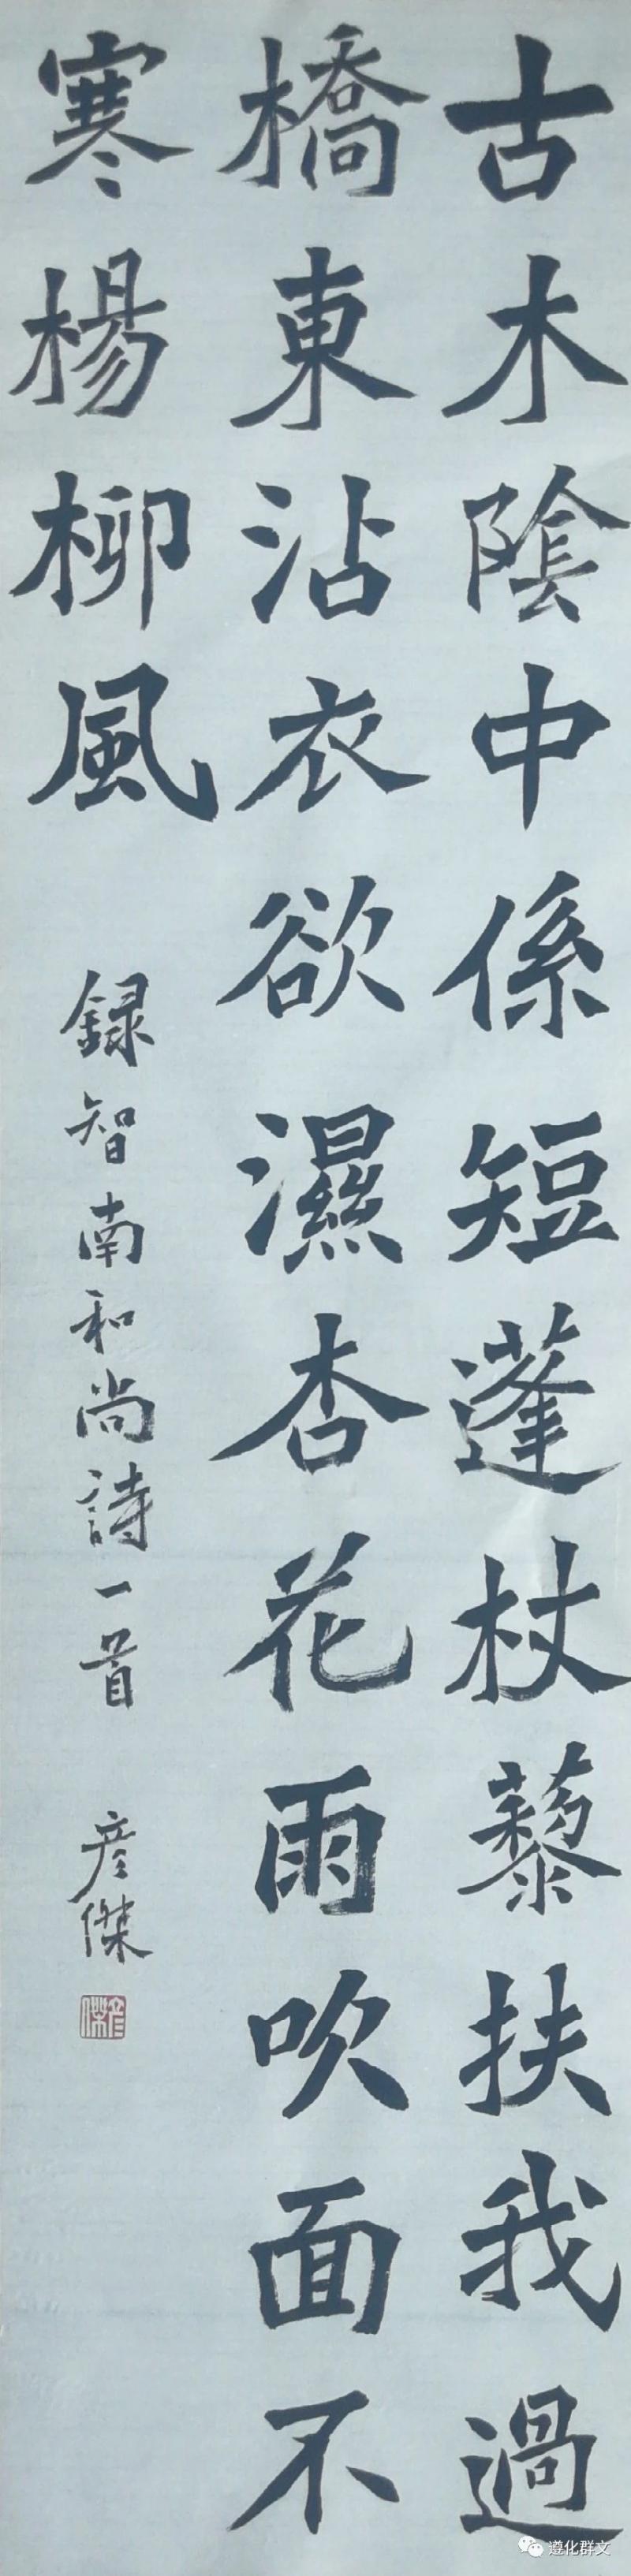 古木陰中係短蓬杖藜扶我過
橋東沾衣欲濕杏花雨吹面不
寒楊柳風
録智南和尚詩一首
彦傑
彦傑
遵化群文